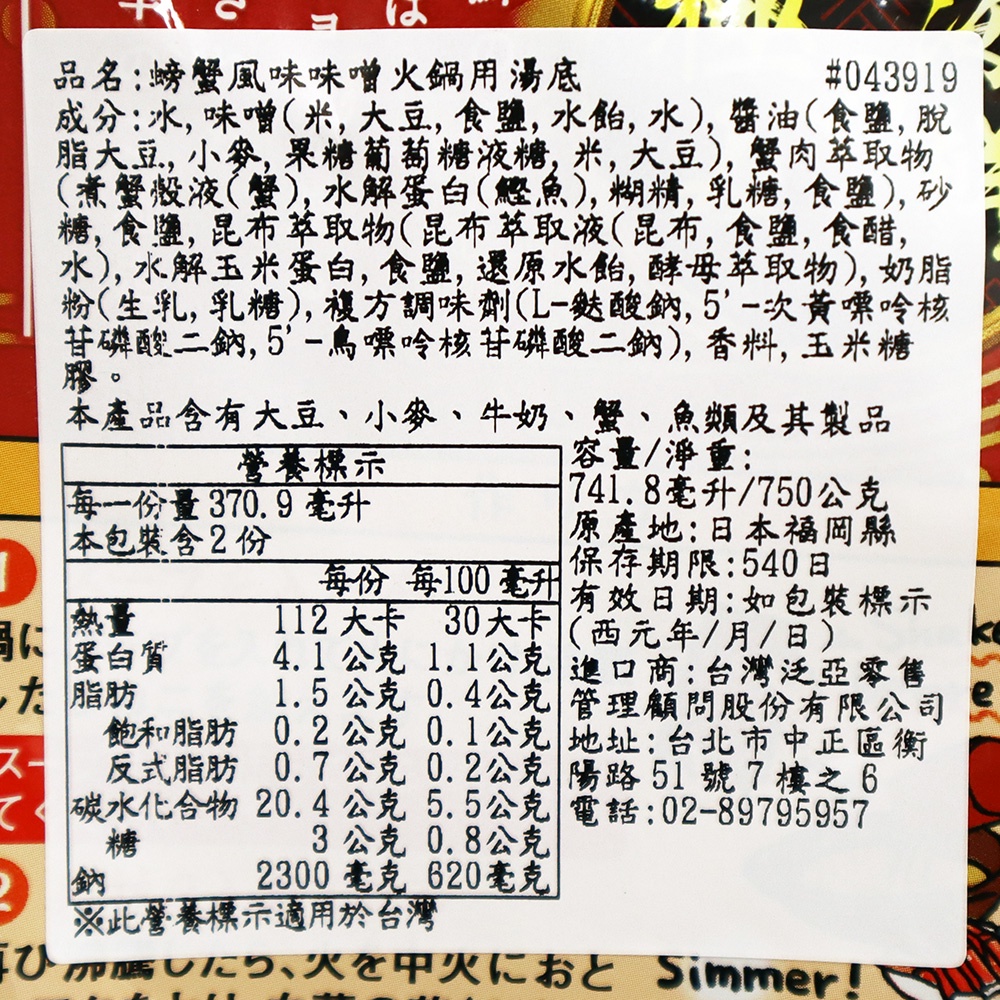 品名:螃蟹風味味噌火鍋用湯底 #043919
成分:水,味噌(米,大豆,食鹽,水飴,水),醬油(食鹽,脫
脂大豆,小麥,果糖葡萄糖液糖,米,大豆),蟹肉萃取物
(煮蟹殼液(蟹),水解蛋白(鰹魚),糊精,乳糖,食鹽),砂
糖,食鹽,昆布萃取物(昆布萃取液(昆布,食鹽,食醋,
水),水解玉米蛋白,食鹽,還原水飴,酵母萃取物),奶脂
粉(生乳,乳糖),複方調味劑(L-麩酸鈉,5'-次黃嘌呤核
苷磷酸二鈉,5'-鳥嘌呤核苷磷酸二鈉),香料,玉米糖
膠。
本產品含有大豆、小麥、牛奶、蟹、魚類及其製品
營養標示
每一份量370.9毫升
本包裝含2份
每份 每100毫升
熱量 112大卡 30大卡
蛋白質 4.1公克 1.1公克
脂肪 1.5公克 0.4公克
飽和脂肪 0.2公克 0.1公克
反式脂肪 0.7公克 0.2公克
碳水化合物 20.4公克 5.5公克
糖 3公克 0.8公克
鈉 2300毫克 620毫克
※此營養標示適用於台灣
容量/淨重:
741.8毫升/750公克
原產地:日本福岡縣
保存期限:540日
有效日期:如包裝標示
(西元年/月/日)
進口商:台灣泛亞零售
管理顧問股份有限公司
地址:台北市中正區衡
陽路51號7樓之6
電話:02-89795957
再び沸騰したら、火を中火におと
Simmer!